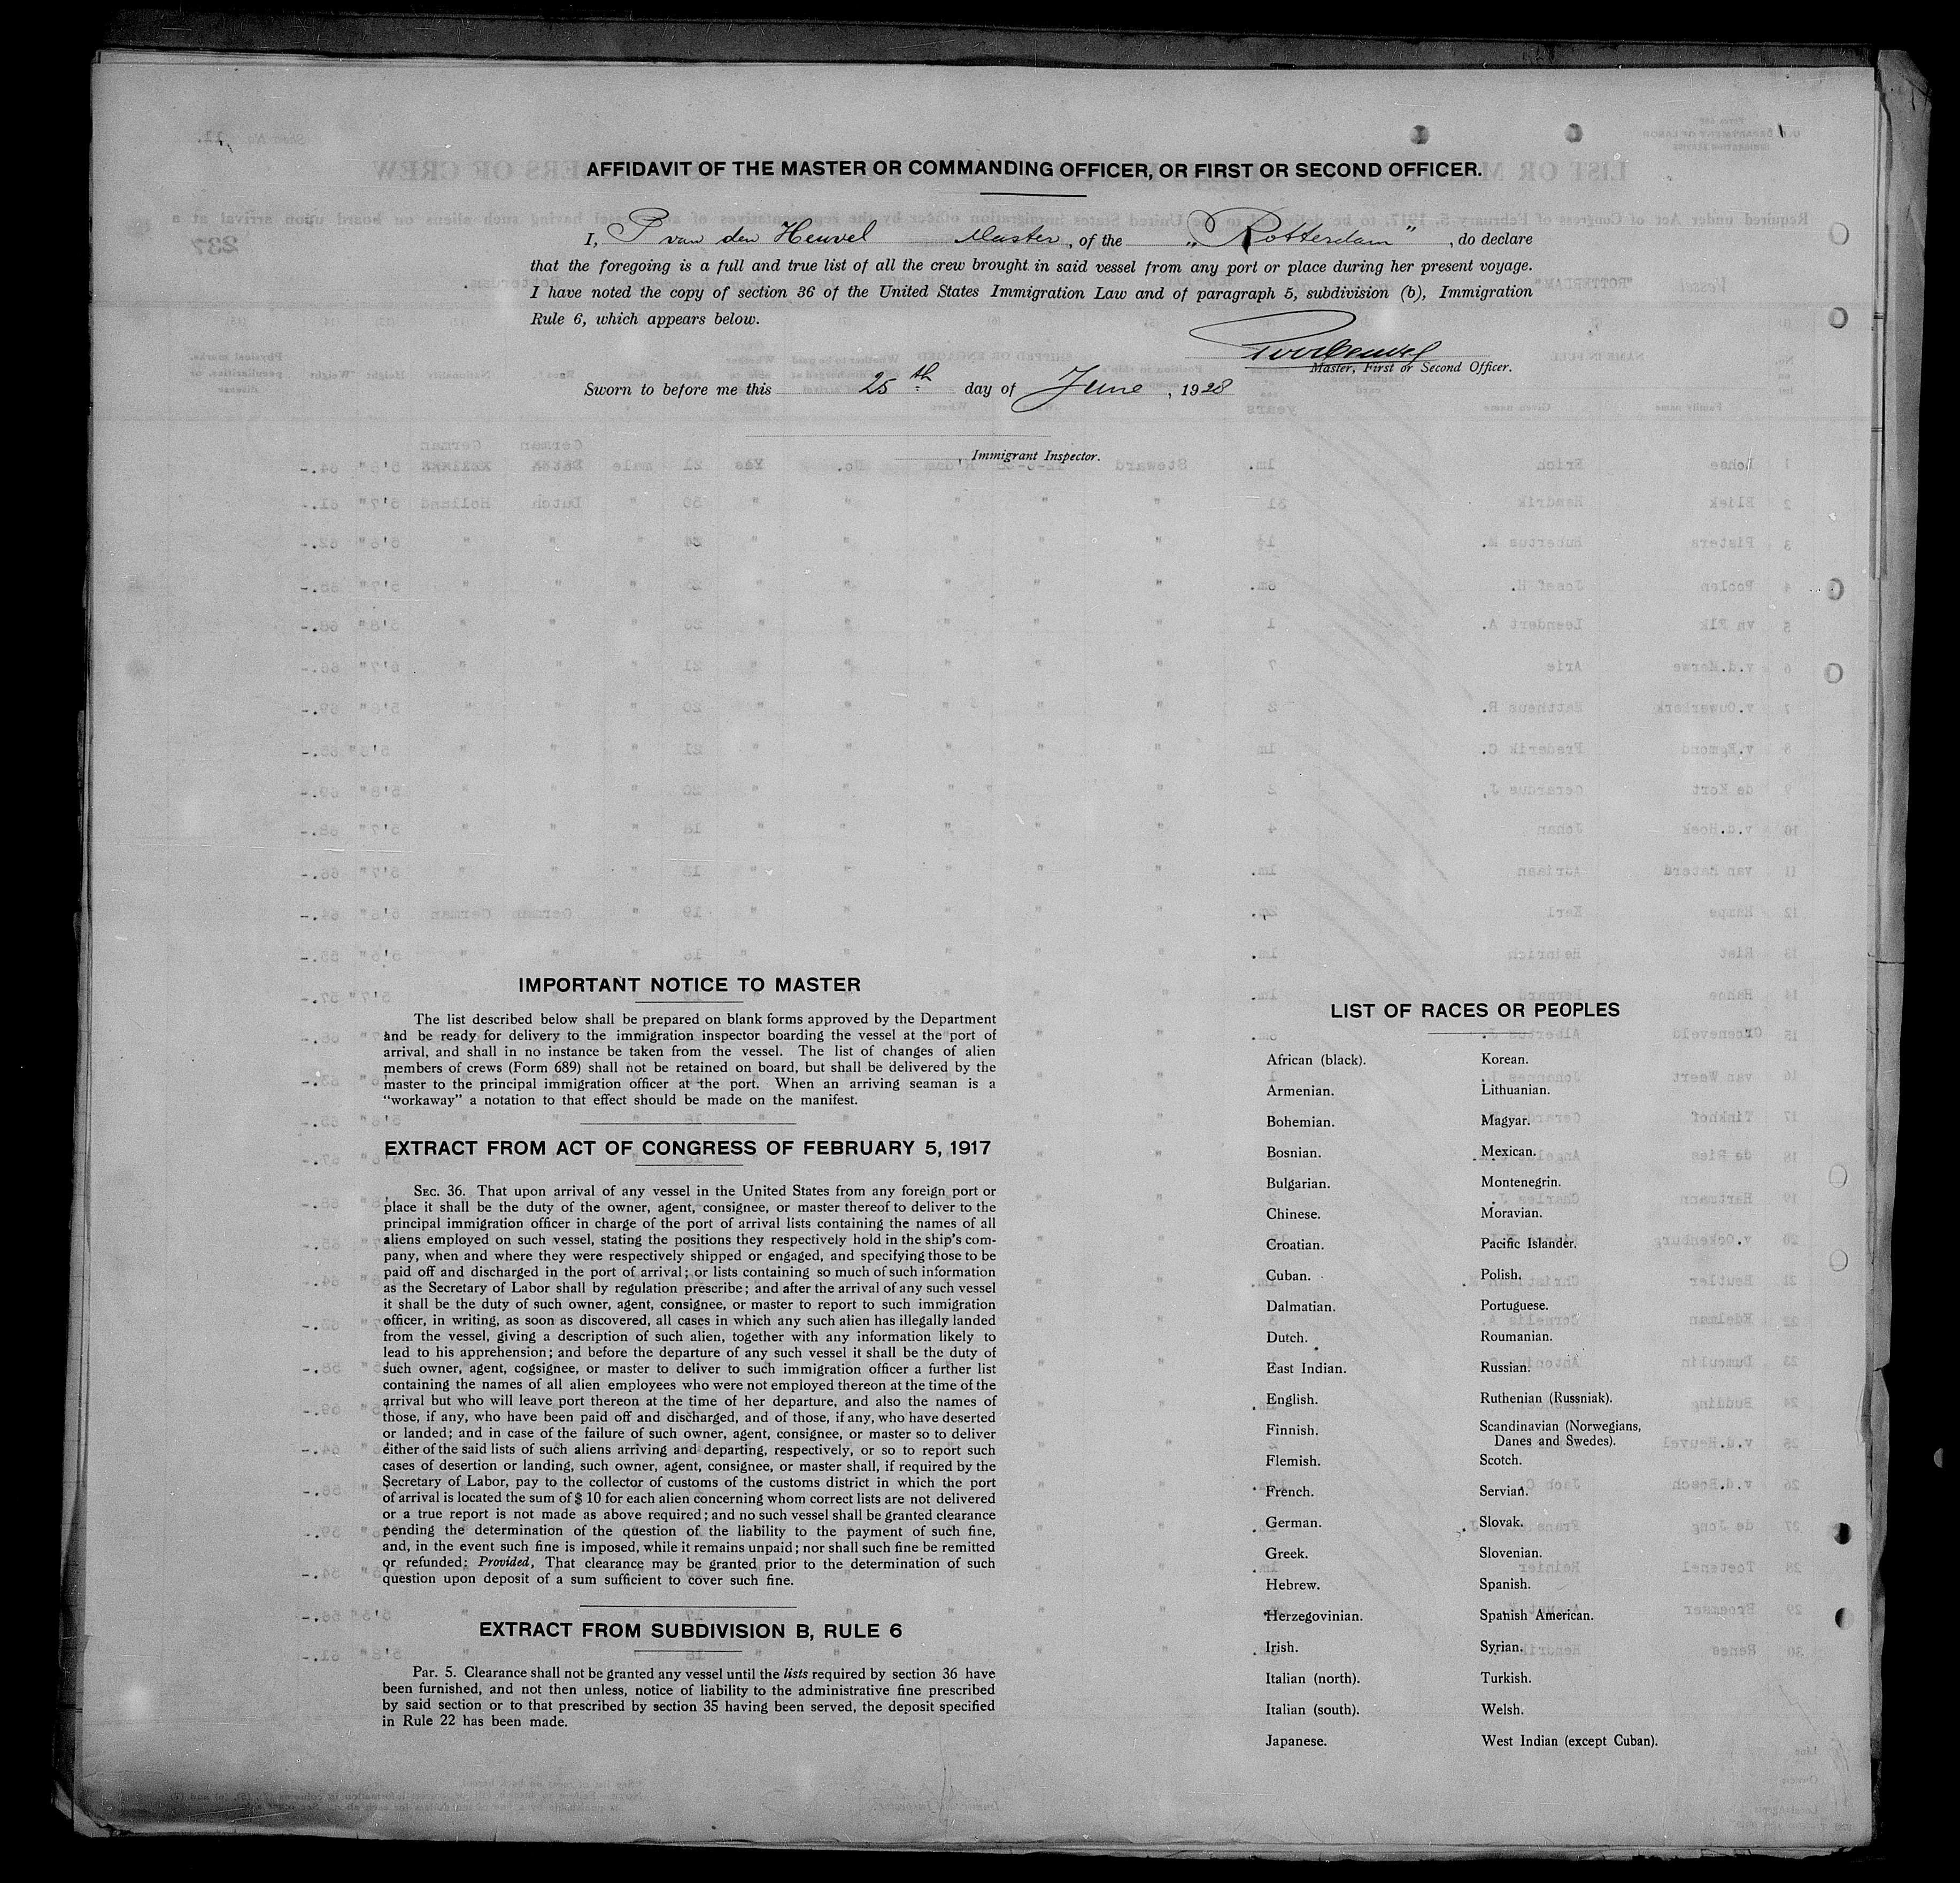 AFFIDAVIT OF THE MASTER OR COMMANDING OFFICER, OR FIRST OR SECOND OFFICER.
I, P van den Heuvel Master, of the „Rotterdam", do declare
that the foregoing is a full and true list of all the crew brought in said vessel from any port or place during her present voyage.
I have noted the copy of section 36 of the United States Immigration Law and of paragraph 5, subdivision (b), Immigration
Rule 6, which appears below.
Master, First or Second Officer.
Sworn to before me this 25th day of June, 1928
, Immigrant Inspector.
IMPORTANT NOTICE TO MASTER
The list described below shall be prepared on blank forms approved by the Department
and be ready for delivery to the immigration inspector boarding the vessel at the port of
arrival, and shall in no instance be taken from the vessel. The list of changes of alien
members of crews (Form 689) shall not be retained on board, but shall be delivered by the
master to the principal immigration officer at the port. When an arriving seaman is a
"workaway" a notation to that effect should be made on the manifest.
EXTRACT FROM ACT OF CONGRESS OF FEBRUARY 5, 1917
SEC. 36. That upon arrival of any vessel in the United States from any foreign port or
place it shall be the duty of the owner, agent, consignee, or master thereof to deliver to the
principal immigration officer in charge of the port of arrival lists containing the names of all
aliens employed on such vessel, stating the positions they respectively hold in the ship's com-
pany, when and where they were respectively shipped or engaged, and specifying those to be
paid off and discharged in the port of arrival; or lists containing so much of such information
as the Secretary of Labor shall by regulation prescribe; and after the arrival of any such vessel
it shall be the duty of such owner, agent, consignee, or master to report to such immigration
officer, in writing, as soon as discovered, all cases in which any such alien has illegally landed
from the vessel, giving a description of such alien, together with any information likely to
lead to his apprehension; and before the departure of any such vessel it shall be the duty of
such owner, agent, cogsignee, or master to deliver to such immigration officer a further list
containing the names of all alien employees who were not employed thereon at the time of the
arrival but who will leave port thereon at the time of her departure, and also the names of
those, if any, who have been paid off and discharged, and of those, if any, who have deserted
or landed; and in case of the failure of such owner, agent, consignee, or master so to deliver
either of the said lists of such aliens arriving and departing, respectively, or so to report such
cases of desertion or landing, such owner, agent, consignee, or master shall, if required by the
Secretary of Labor, pay to the collector of customs of the customs district in which the port
of arrival is located the sum of $ 10 for each alien concerning whom correct lists are not delivered
or a true report is not made as above required; and no such vessel shall be granted clearance
pending the determination of the question of the liability to the payment of such fine,
and, in the event such fine is imposed, while it remains unpaid; nor shall such fine be remitted
or refunded: Provided, That clearance may be granted prior to the determination of such
question upon deposit of a sum sufficient to cover such fine.
EXTRACT FROM SUBDIVISION B, RULE 6
Par. 5. Clearance shall not be granted any vessel until the lists required by section 36 have
been furnished, and not then unless, notice of liability to the administrative fine prescribed
by said section or to that prescribed by section 35 having been served, the deposit specified
in Rule 22 has been made.
LIST OF RACES OR PEOPLES
African (black).
Armenian.
Bohemian.
Bosnian.
Bulgarian.
Chinese.
Croatian.
Cuban.
Dalmatian.
Dutch.
East Indian.
English.
Finnish.
Flemish.
French.
German.
Greek.
Hebrew.
Herzegovinian.
Irish.
Italian (north).
Italian (south).
Japanese.
Korean.
Lithuanian.
Magyar.
Mexican.
Montenegrin.
Moravian.
Pacific Islander.
Polish.
Portuguese.
Roumanian.
Russian.
Ruthenian (Russniak).
Scandinavian (Norwegians,
Danes and Swedes).
Scotch.
Servian.
Slovak.
Slovenian.
Spanish.
Spanish American.
Syrian.
Turkish.
Welsh.
West Indian (except Cuban).